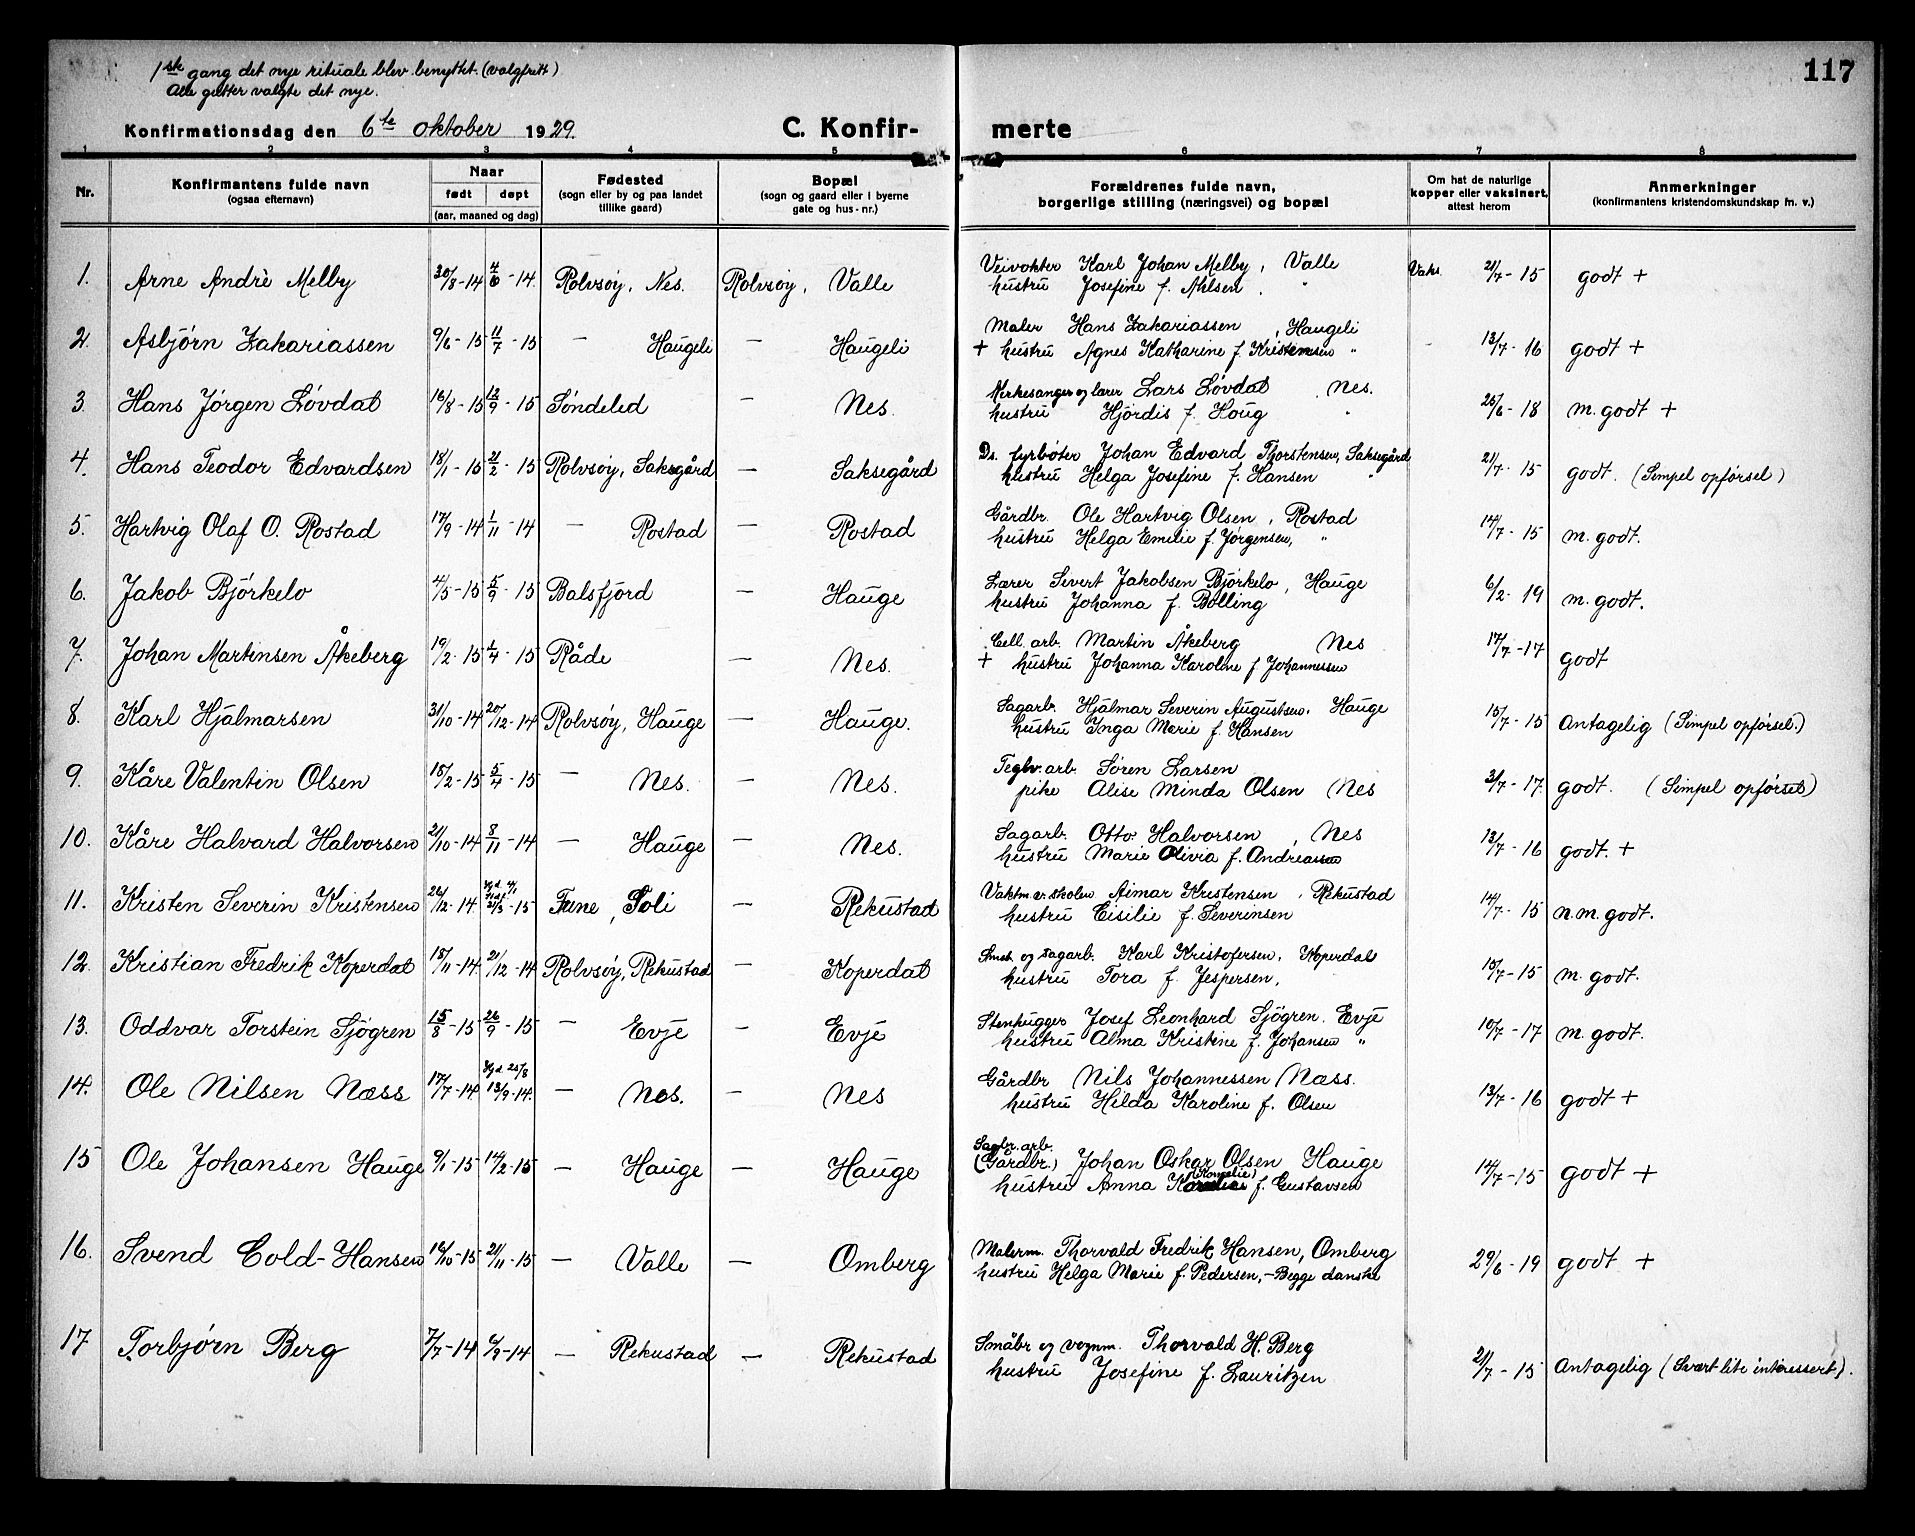 1ste gang det nye rituale blev benyttet. (valgfritt)
Alle gutter valgte det nye.
117
Konfirmationsdag den 6te oktober 1929.
C. Konfir- merte
1 2 3 4 5 6 7 8
Nr. Konfirmantens fulde navn (ogsaa efternavn) Naar født døpt (aar, maaned og dag) Fødested (sogn eller by og paa landet tillike gaard) Bopæl (sogn og gaard eller i byerne gate og hus-nr.) Forældrenes fulde navn, borgerlige stilling (næringsvei) og bopæl Om hat de naturlige kopper eller vaksinert, attest herom Anmerkninger (konfirmantens kristendomskundskap fn. v.)
1. Arne Andrè Melby 30/8-14 4/6-14. Rolvsøy, Nes. Rolvsøy, Valle Veivokter Karl Johan Melby, Valle Vaks. 21/7-15 godt +
hustru Josefine f. Ahlsen. "
2. Asbjørn Zakariassen 9/6-15 11/7-15 — Haugeli — Haugeli Maler Hans Zakariassen, Haugeli 13/7-16 godt +
+ hustru Agnes Katharine f. Kristensen "
3. Hans Jørgen Løvdal 16/8-15 12/9-15 Søndeled — Nes. Kirkesanger og lærer Lars Løvdal Nes. 25/6-18 m. godt +
hustru Hjørdis f. Houg "
4. Hans Teodor Edvardsen 18/1-15 21/2-15 Rolvsøy, Saksegård — Saksegård Ds. fyrbøter Johan Edvard Thorstensen, Saksegård 21/7-15 godt. (Simpel opførsel)
hustru Helga Josefine f. Hansen "
5. Hartvig Olaf O. Rostad 17/9-14 1/11-14 — Rostad — Rostad Gårdbr. Ole Hartvig Olsen, Rostad 14/7-15 m. godt.
hustru Helga Emilie f. Jørgensen, "
6. Jakob Bjørkelo 4/5-15 5/9-15 Balsfjord — Hauge Lærer Sivert Jakobsen Bjørkelo, Hauge 6/2-19 m. godt.
hustru Johanna f. Bolling
7. Johan Martinsen Åkeberg 19/2-15 /4-15 Råde — Nes. Cell. arb. Martin Åkeberg Nes 17/7-17 godt
+ hustru Johanna Karoline f Johannessen
8. Karl Hjalmarsen 31/10-14 20/12-14 Rolvsøy, Hauge — Hauge. Sagarb. Hjalmar Severin Augustsen. Hauge 15/7-15 Antagelig (Simpel opførsel.)
hustru Inga Marie f. Hansen
9. Kåre Valentin Olsen 15/2-15 5/4-15 — Nes. — Nes. Teglv. arb. Søren Larsen 3/7-17. godt. (Simpel opførsel)
pike Alise Minda Olsen Nes
10. Kåre Halvard Halvorsen 21/10-14 8/11-14 — Hauge — Nes. Sagarb. Otto Halvorsen, Nes 13/7-16 godt. +
hustru Marie Olivia f. Andreassen
11. Kristen Severin Kristensen 26/12-14. 21/3-15 Tune, Soli — Rekustad Vaktm. v. skolen Aimar Kristensen, Rekustad 14/7-15 n.m. godt.
hustru Eisilie f. Severinsen
12. Kristian Fredrik Koperdal 15/11-14. 21/12-14 Rolvsøy, Rekustad — Koperdal Smed og sagarb. Karl Kristofersen, Koperdal 15/7-15 m. godt.
hustru Tora f. Jespersen,
13. Oddvar Torstein Sjøgren 15/8-15 26/9-15 — Evje — Evje Stenhugger Josef Leonhard Sjögren. Evje 10/7-17 m. godt.
hustru Alma Kristine f. Johansen "
14. Ole Nilsen Næss 17/7-14 Hjd. 25/8 13/9-14. — Nes. — Nes Gårdbr Nils Johannessen Næss. 13/7-16 godt +
hustru Hilda Karoline f. Olsen
15 Ole Johansen Hauge 9/1-15 14/2-15 — Hauge — Hauge Sagbr. arb. (Gårdbr.) Johan Oskar Olsen Hauge 14/7-15 godt +
hustru Anna f. Gustavsen
16. Svend Cold-Hansen 16/10-15 21/11-15 — Valle — Omberg Malerm. Thorvald Fredrik Hansen, Omberg 29/6-19 godt +
hustru Helga Marie f. Pedersen, – Begge danske
17 Torbjørn Berg 7/7-14 6/9-14 — Rekustad — Rekustad Småbr og vognm. Thorvald H. Berg 21/7-15 Antagelig (Svært lite interessert).
hustru Josefine f. Lauritzen